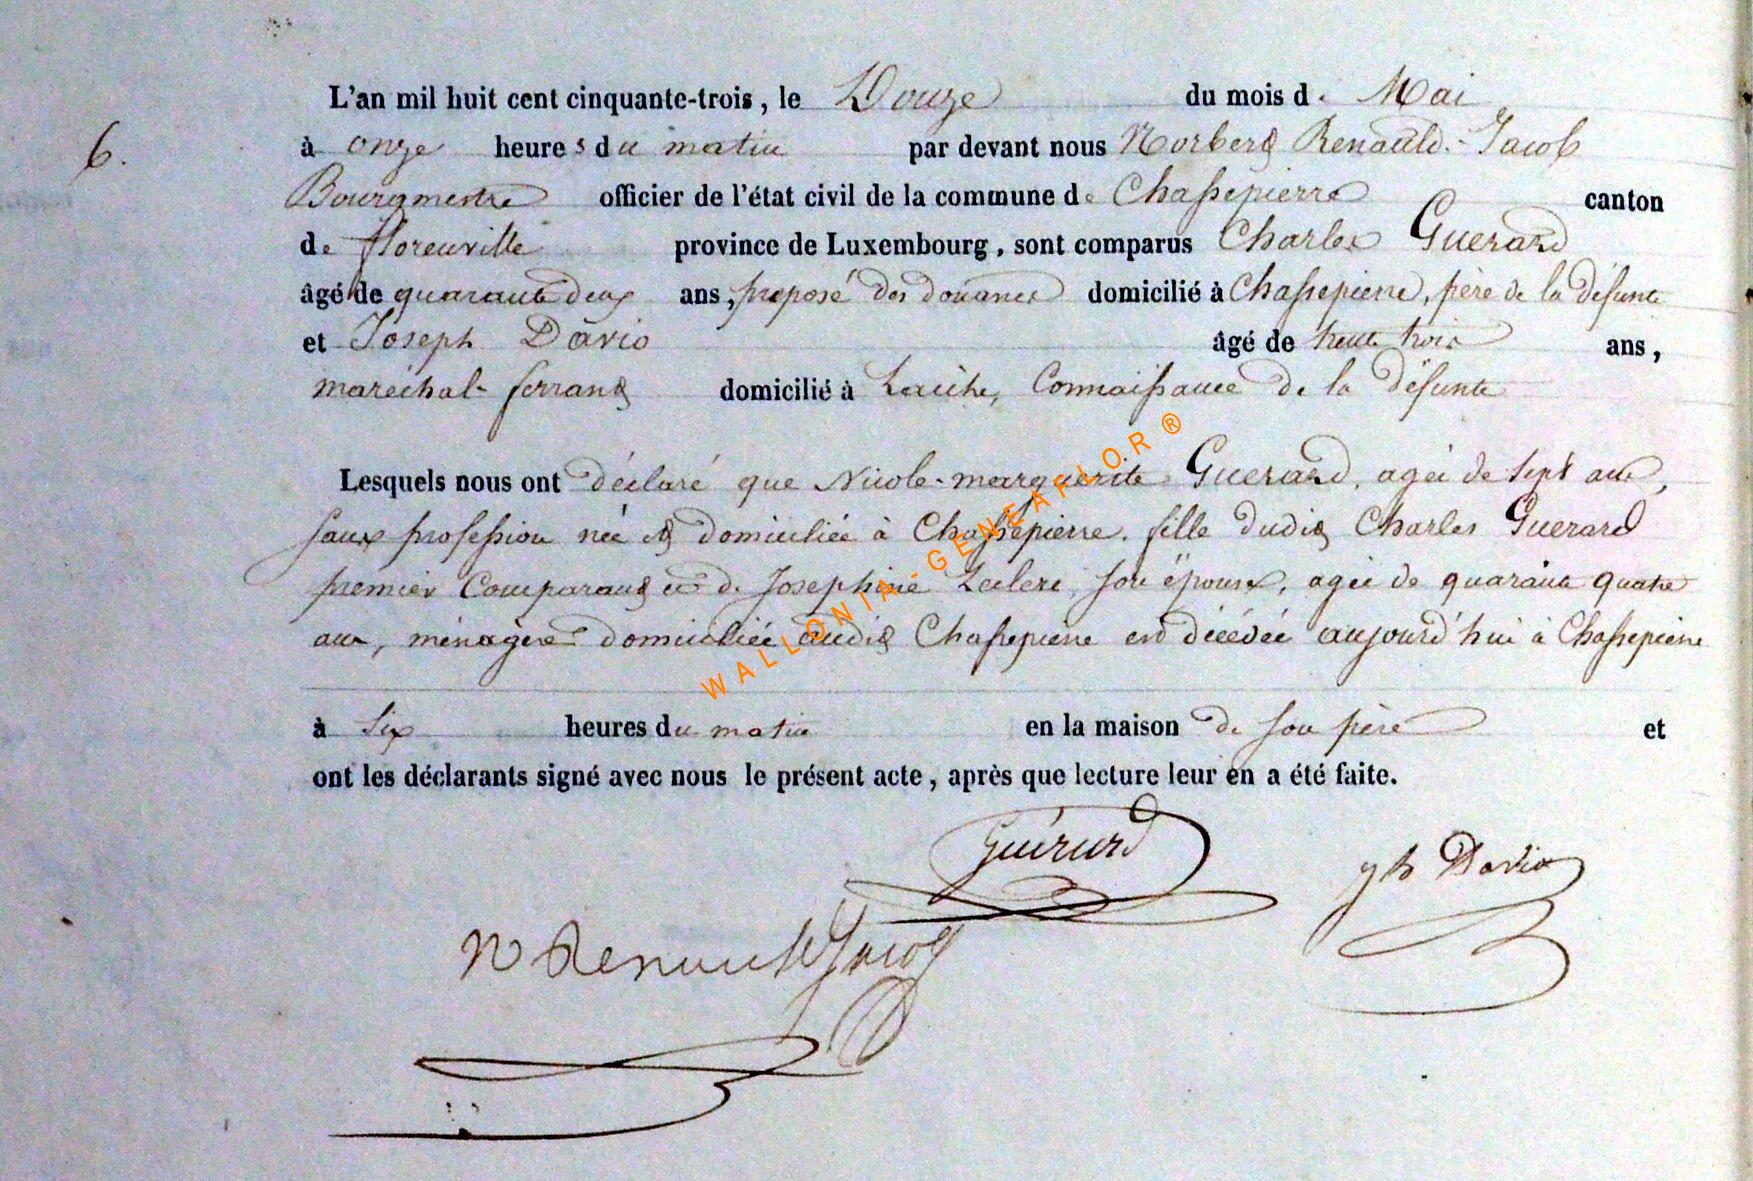 L'an mil huit cent cinquante-trois, le Douze du mois de Mai
6.
à onze heures du matin par devant nous Norbert Renauld-Jacob
Bourgmestre officier de l'état civil de la commune de Chassepierre canton
de florenville province de Luxembourg, sont comparus Charles Guerard
âgé de quarante deux ans, preposé des douanes domicilié à Chassepierre, père de la défunte
et Joseph Davio âgé de trente trois ans,
maréchal-ferrant domicilié à Laiche, Connaissance de la défunte
Lesquels nous ont déclaré que Nicole-marguerite Guerard, agée de sept ans,
sans profession née et domiciliée à Chassepierre, fille dudit Charles Guerard
premier Comparant et de Josephine Leclerc, son épouse, agée de quarante quatre
ans, ménagère domiciliée audit Chassepierre est décédée aujourd'hui à Chassepierre
à six heures du matin en la maison de son père et
ont les déclarants signé avec nous le présent acte, après que lecture leur en a été faite.
Guérard
jh Davio
N Renauld Jacob
WALLONIA-GENEAFLOR®